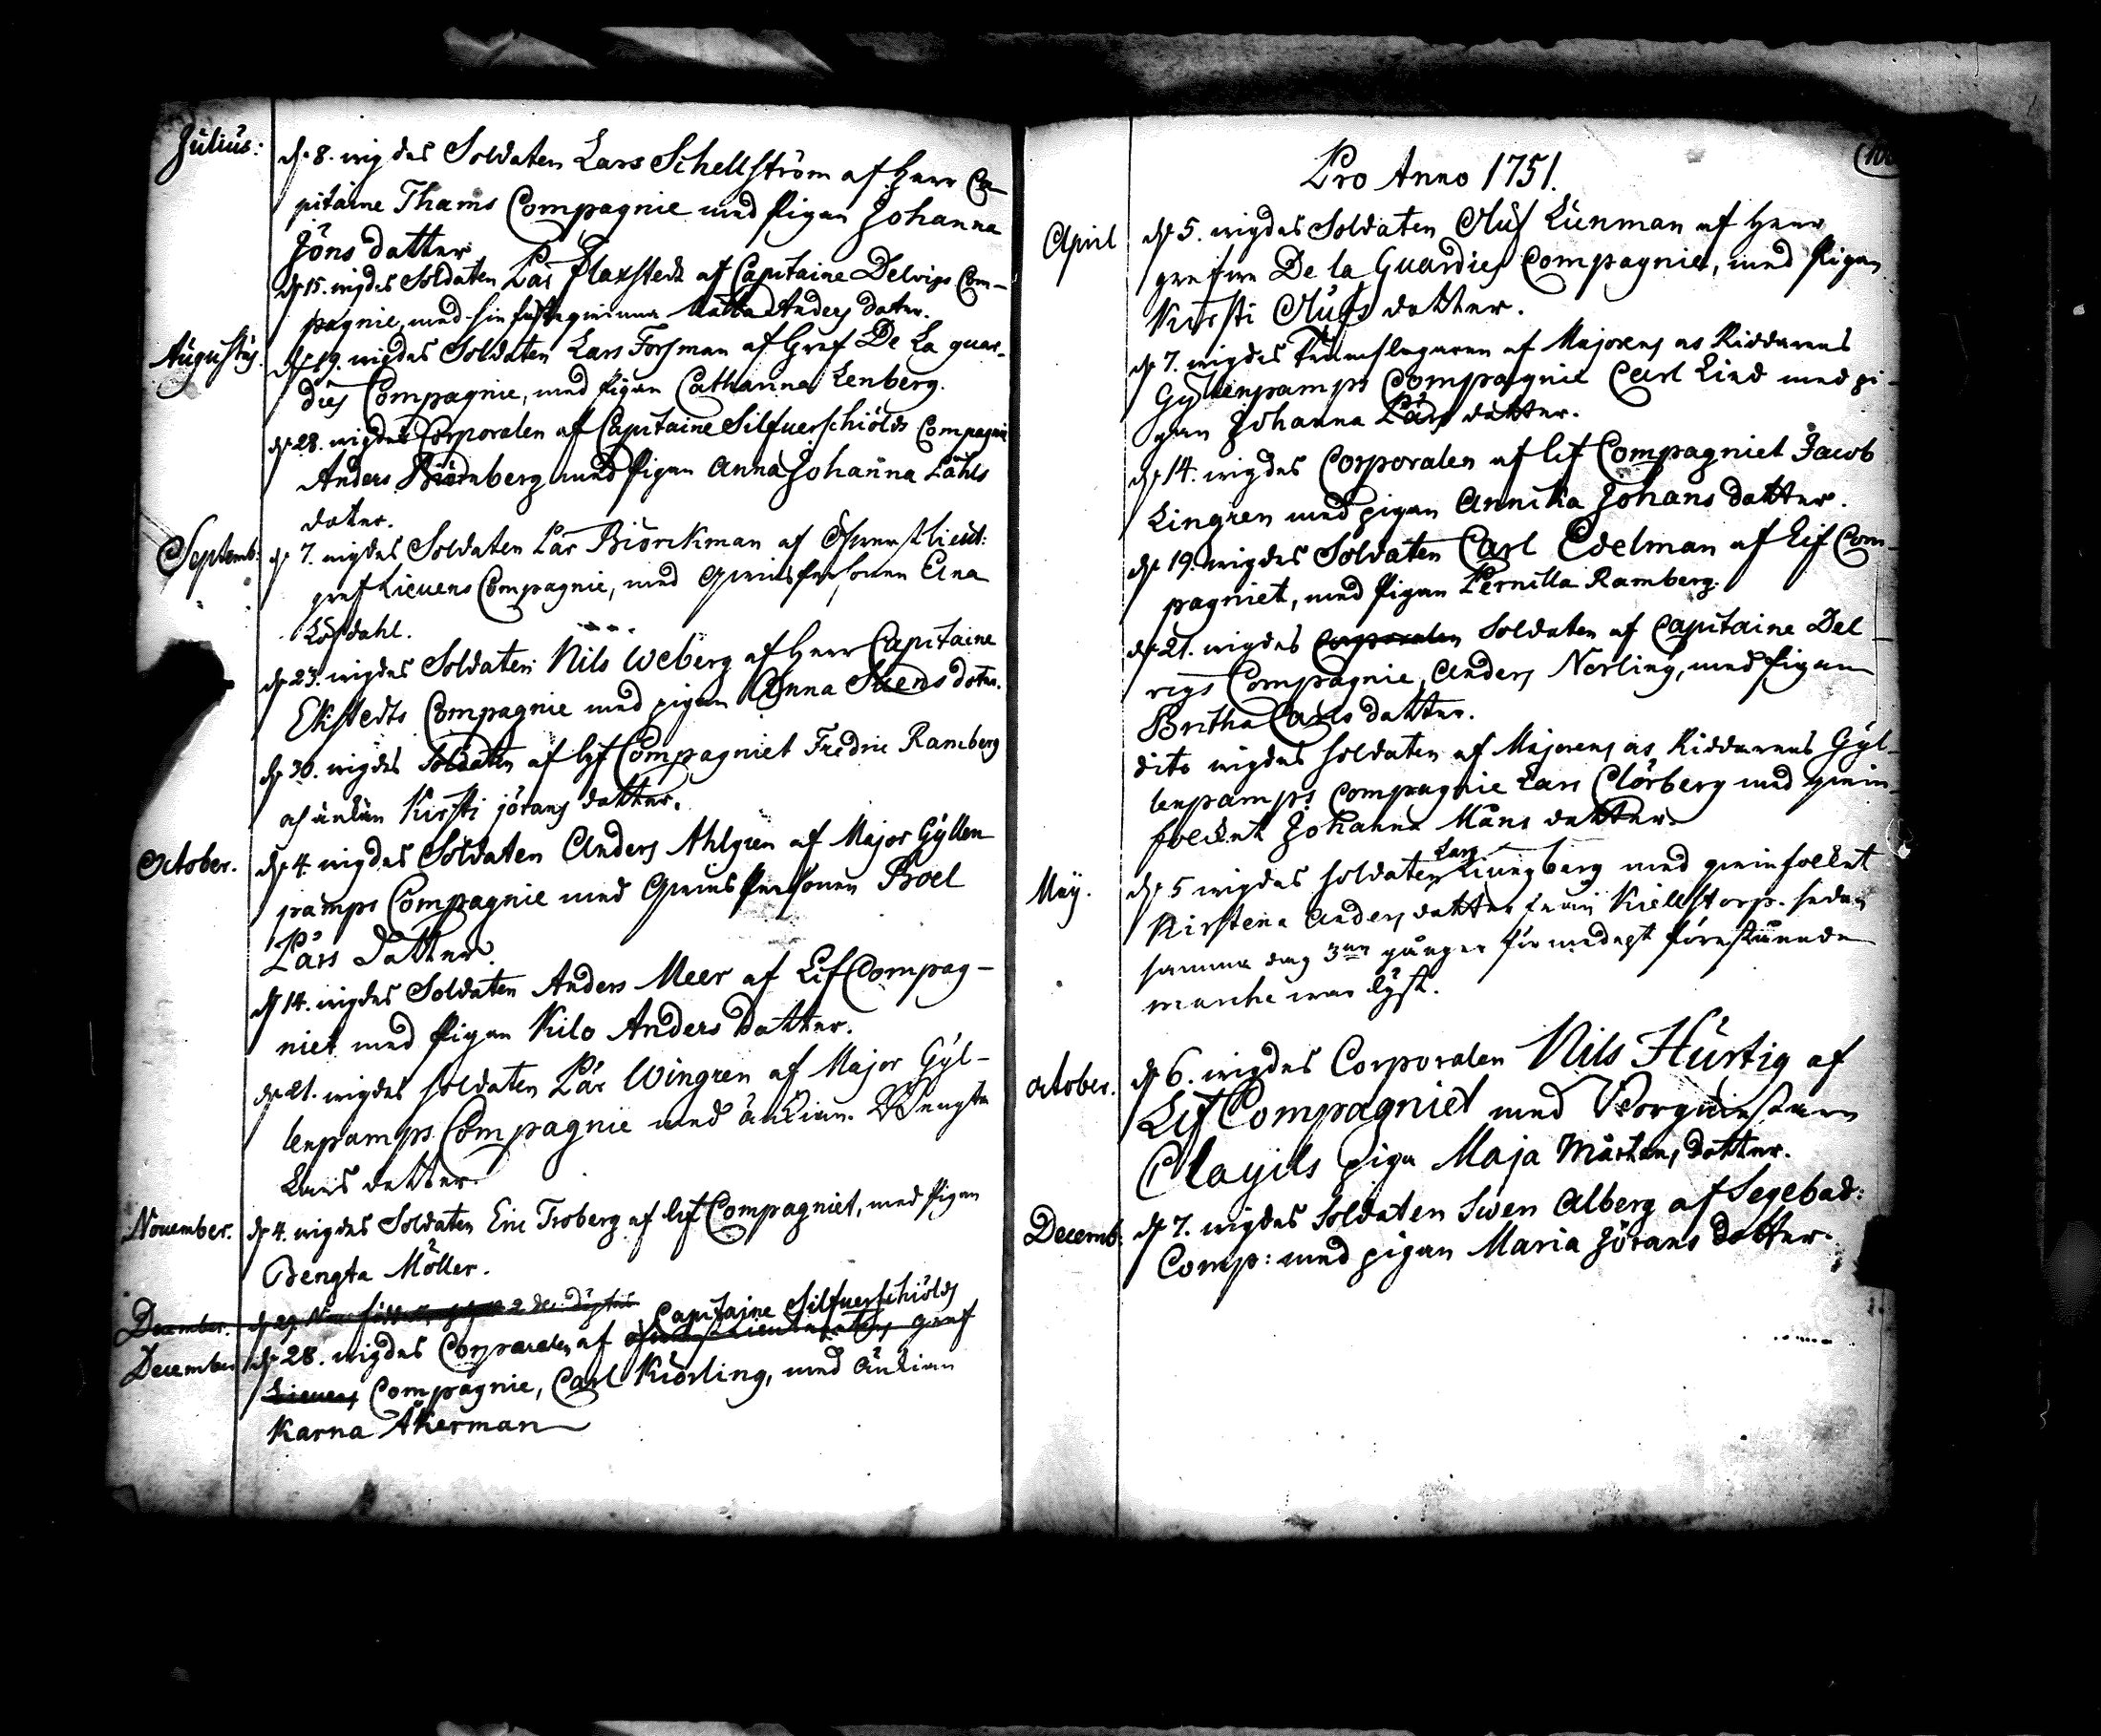 Julius:
d. 8. wigdes Soldaten Lars Schellström af Herr Ca-
pitaine Thams Compagnie med Pigan Johanna
Jöns datter
d. 15. wigdes Soldaten Pär Flaxstedt af Capitaine Delwigs Com-
pagnie, med sin Anders dater.
Augustus.
d. 19. wigdes Soldaten Lars Forsman af Gref De La guar-
dies Compagnie, med Pigan Catharina Lenberg.
d. 28. wigdes Corporalen af Capitaine Silfuerschiölds Compagnie
Anders Biörnberg med Pigan Anna Johanna Påhls
dater.
Septemb:
d. 7. wigdes Soldaten Pär Biörckman af Öfwerstlieut:
gref Lieuens Compagnie, med Qwinspersonen Elna
Löfdahl.
d. 23. wigdes Soldaten Nils Weberg af Herr Capitaine
Ekstedts Compagnie med pigan Anna Suens doter.
d. 30. wigdes Soldaten af lif Compagniet Fredric Ramberg
och änkan Kirsti jörans datter.
October.
d. 4. wigdes Soldaten Anders Ahlgren af Major Gyllen
pamps Compagnie med Qwinspersonen Boel
Pärs Datter.
d. 14. wigdes Soldaten Anders Meer af Lif Compag-
niet med Pigan Kilo Anders datter.
d. 21. wigdes soldaten Pär Wingren af Major Gyl-
lenpamps Compagnie med änkian Bengta
Lars datter
November.
d. 4. wigdes Soldaten Eric Troberg af lif Compagniet, med Pigan
Bengta Möller.
December.
d. 29.
Capitaine Silfuerschiölds
December
d. 28. wigdes Corporalen af öfwerstLieutnanten gref
Lieuens Compagnie, Carl Kiörling, med änkian
Karna Åkerman
Pro Anno 1751.
April
d. 5. wigdes Soldaten Oluf Lünman af Herr
grefwe De la Guardies Compagnie, med Pigan
Kirsti Olufs datter.
d. 7. wigdes Trumslagaren af Majorens oc Riddarens
Gyllenpamps Compagnie Carl Lind med pi-
gan Johanna Pärs datter.
d. 14. wigdes Corporalen af lif Compagniet Jacob
Lingren med pigan Annika Johans datter.
d. 19. wigdes Soldaten Carl Edelman af Lif Com-
pagniet, med Pigan Pernilla Ramberg.
d. 21. wigdes Corporalen Soldaten af Capitaine Del-
wigs Compagnie, Anders Norling, med Pigan
Britha Carls datter.
dito wigdes soldaten af Majorens oc Riddarens Gyl-
lenpamps Compagnie Lars Clörberg med qwin-
folcket Johanna Måns datter
May.
Lars
d. 5 wigdes soldaten Liungberg med qwinfolket
Kirstena Anders datter från Kiellstorp. sedan
samma dag 3ne gånger för medelst förestående
marche war lyst.
October.
d. 6. wigdes Corporalen Nils Hurtig af
Lif Compagniet med Borgmestaren
Clayils piga Maja Mårtens dotter.
Decemb:
d. 7. wigdes Soldaten Swen Alberg af Segebad:
Comp: med pigan Maria Jörans dotter.